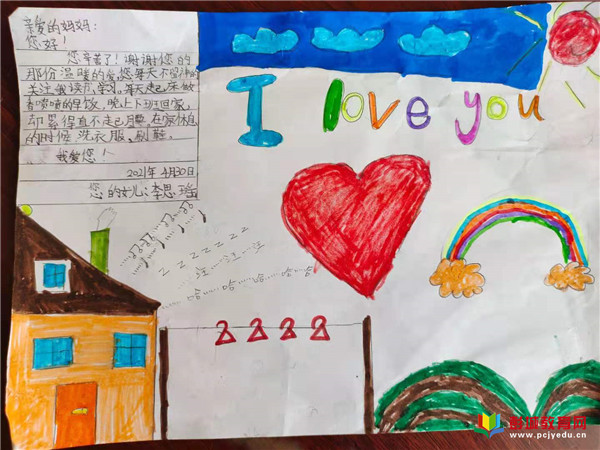 亲爱的妈妈:
您好!
您辛苦了!谢谢您的
那份温暖的爱,您每天不留神的
关注我读书,学习。每天早起,床做
香喷喷的早饭,晚上下班回家,
却累得直不起腰,在家休息
的时候洗衣服,刷鞋。
我爱您!
2021年4月30日
您的女儿:李思瑶
I love you
Z Z Z Z Z Z Z
汪……汪……汪
哈……哈……哈……哈……哈
沛沠教育网
www.pcjyedu.cn